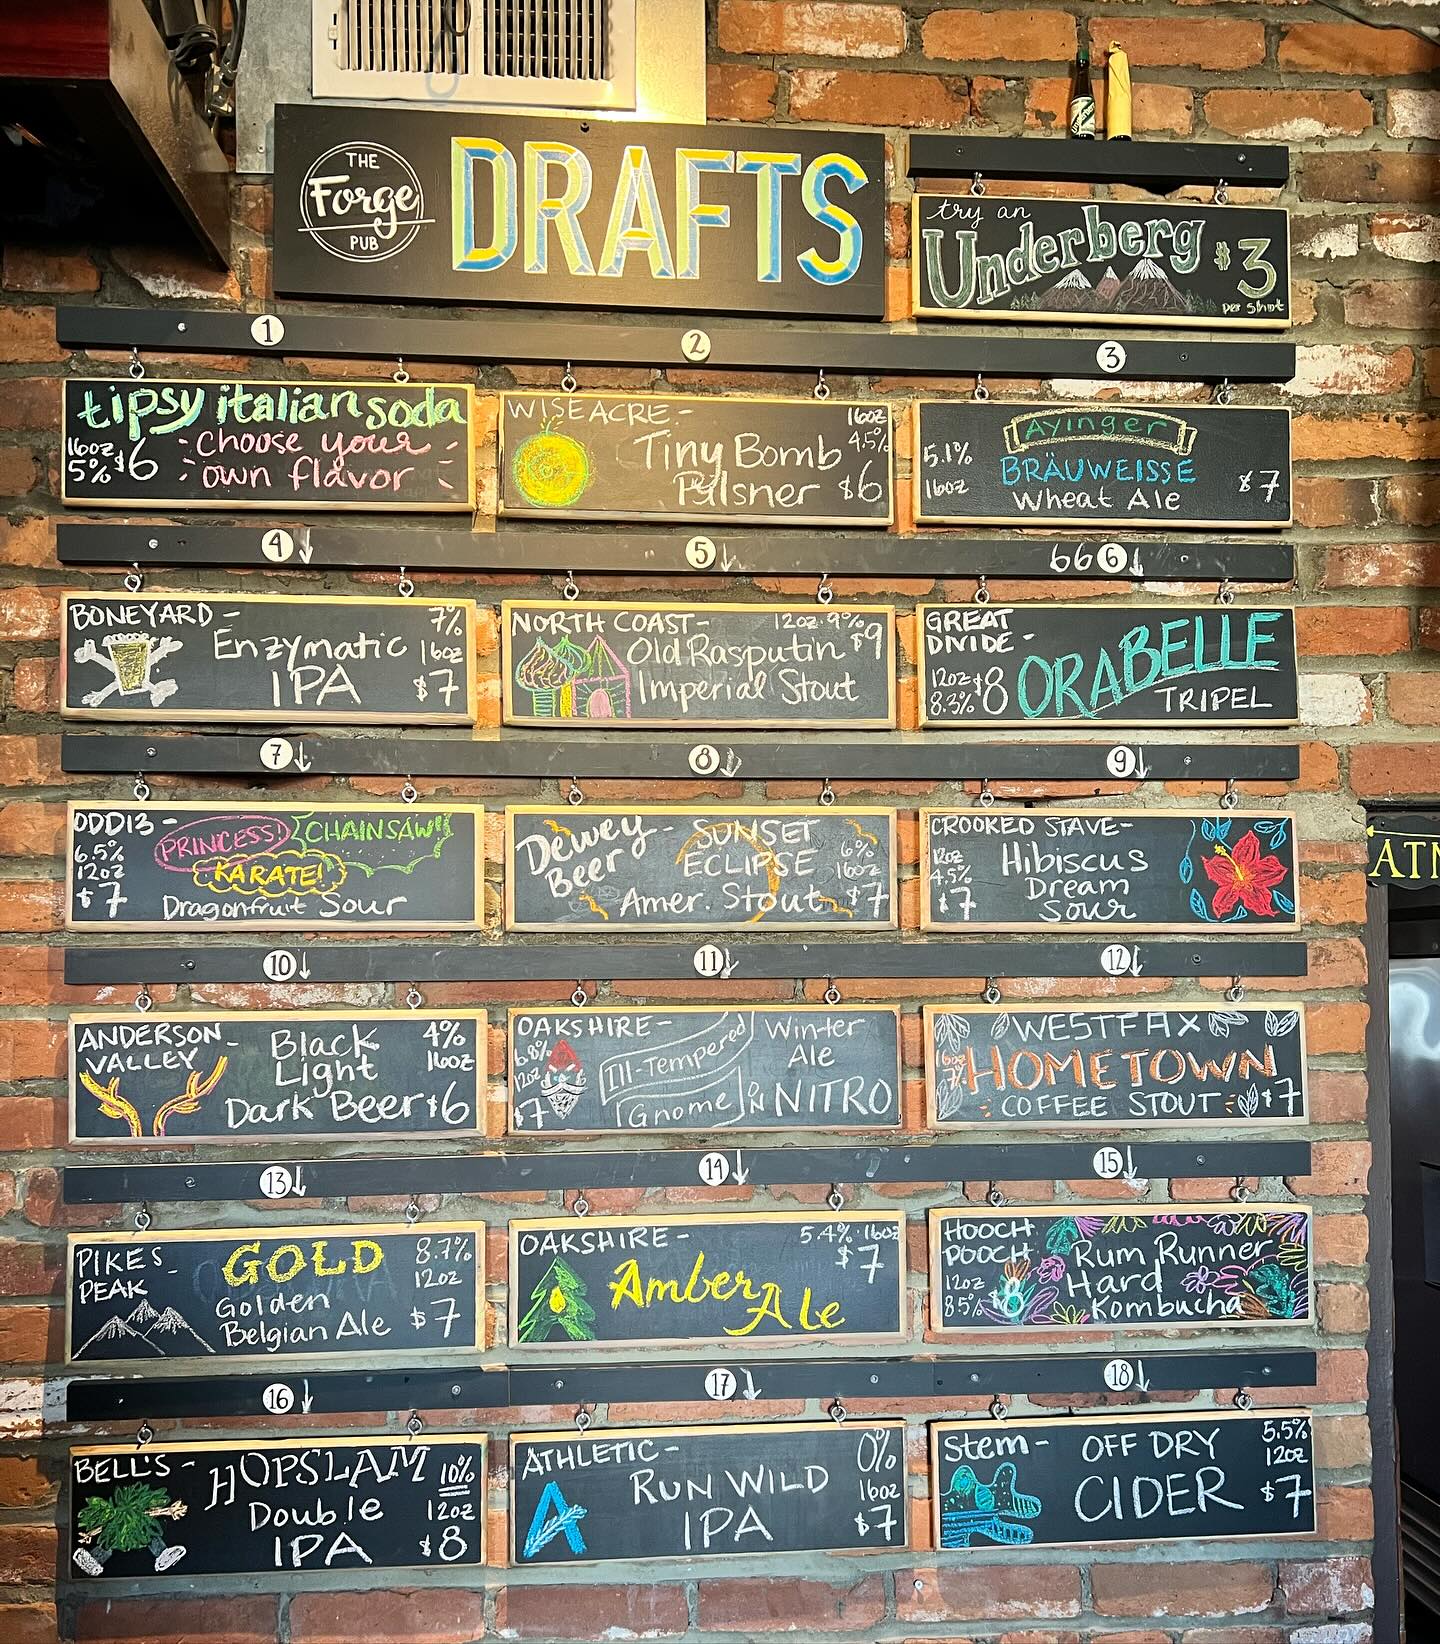 THE
Forge
PUB
DRAFTS
try an
Underberg
$3
per shot
1
2
3
tipsy italian soda
16oz
5%
$6
choose your
own flavor
WISEACRE-
16oz
4.5%
Tiny Bomb
Pilsner
$6
Ayinger
5.1%
16oz
BRÄUWEISSE
Wheat Ale
$7
4↓
5↓
666↓
BONEYARD-
7%
16oz
Enzymatic
IPA
$7
NORTH COAST-
12oz·9%
$9
Old Rasputin
Imperial Stout
GREAT
DIVIDE-
12oz
8.3%
$8
ORABELLE
TRIPEL
7↓
8↓
9↓
ODD13-
6.5%
12oz
$7
PRINCESS!
CHAINSAW!
KARATE!
Dragonfruit Sour
Dewey
Beer
-
SUNSET
ECLIPSE
Amer. Stout
6%
16oz
$7
CROOKED STAVE-
12oz
4.5%
$7
Hibiscus
Dream
Sour
10↓
11↓
12↓
ANDERSON
VALLEY
-
Black
Light
Dark Beer
4%
16oz
$6
OAKSHIRE-
6.8%
12oz
$7
Ill-Tempered
Gnome
Winter
Ale
ON
NITRO
WESTFAX
16oz
7%
HOMETOWN
COFFEE STOUT
$7
13↓
14↓
15↓
PIKES
PEAK
-
GOLD
Golden
Belgian Ale
8.7%
12oz
$7
OAKSHIRE-
5.4%·16oz
$7
Amber
Ale
HOOCH
POOCH
12oz
8.5%
$8
Rum Runner
Hard
Kombucha
16↓
17↓
18↓
BELL'S-
HOPSLAM
Double
IPA
10%
12oz
$8
ATHLETIC-
RUN WILD
IPA
0%
16oz
$7
A
Stem-
OFF DRY
CIDER
5.5%
12oz
$7